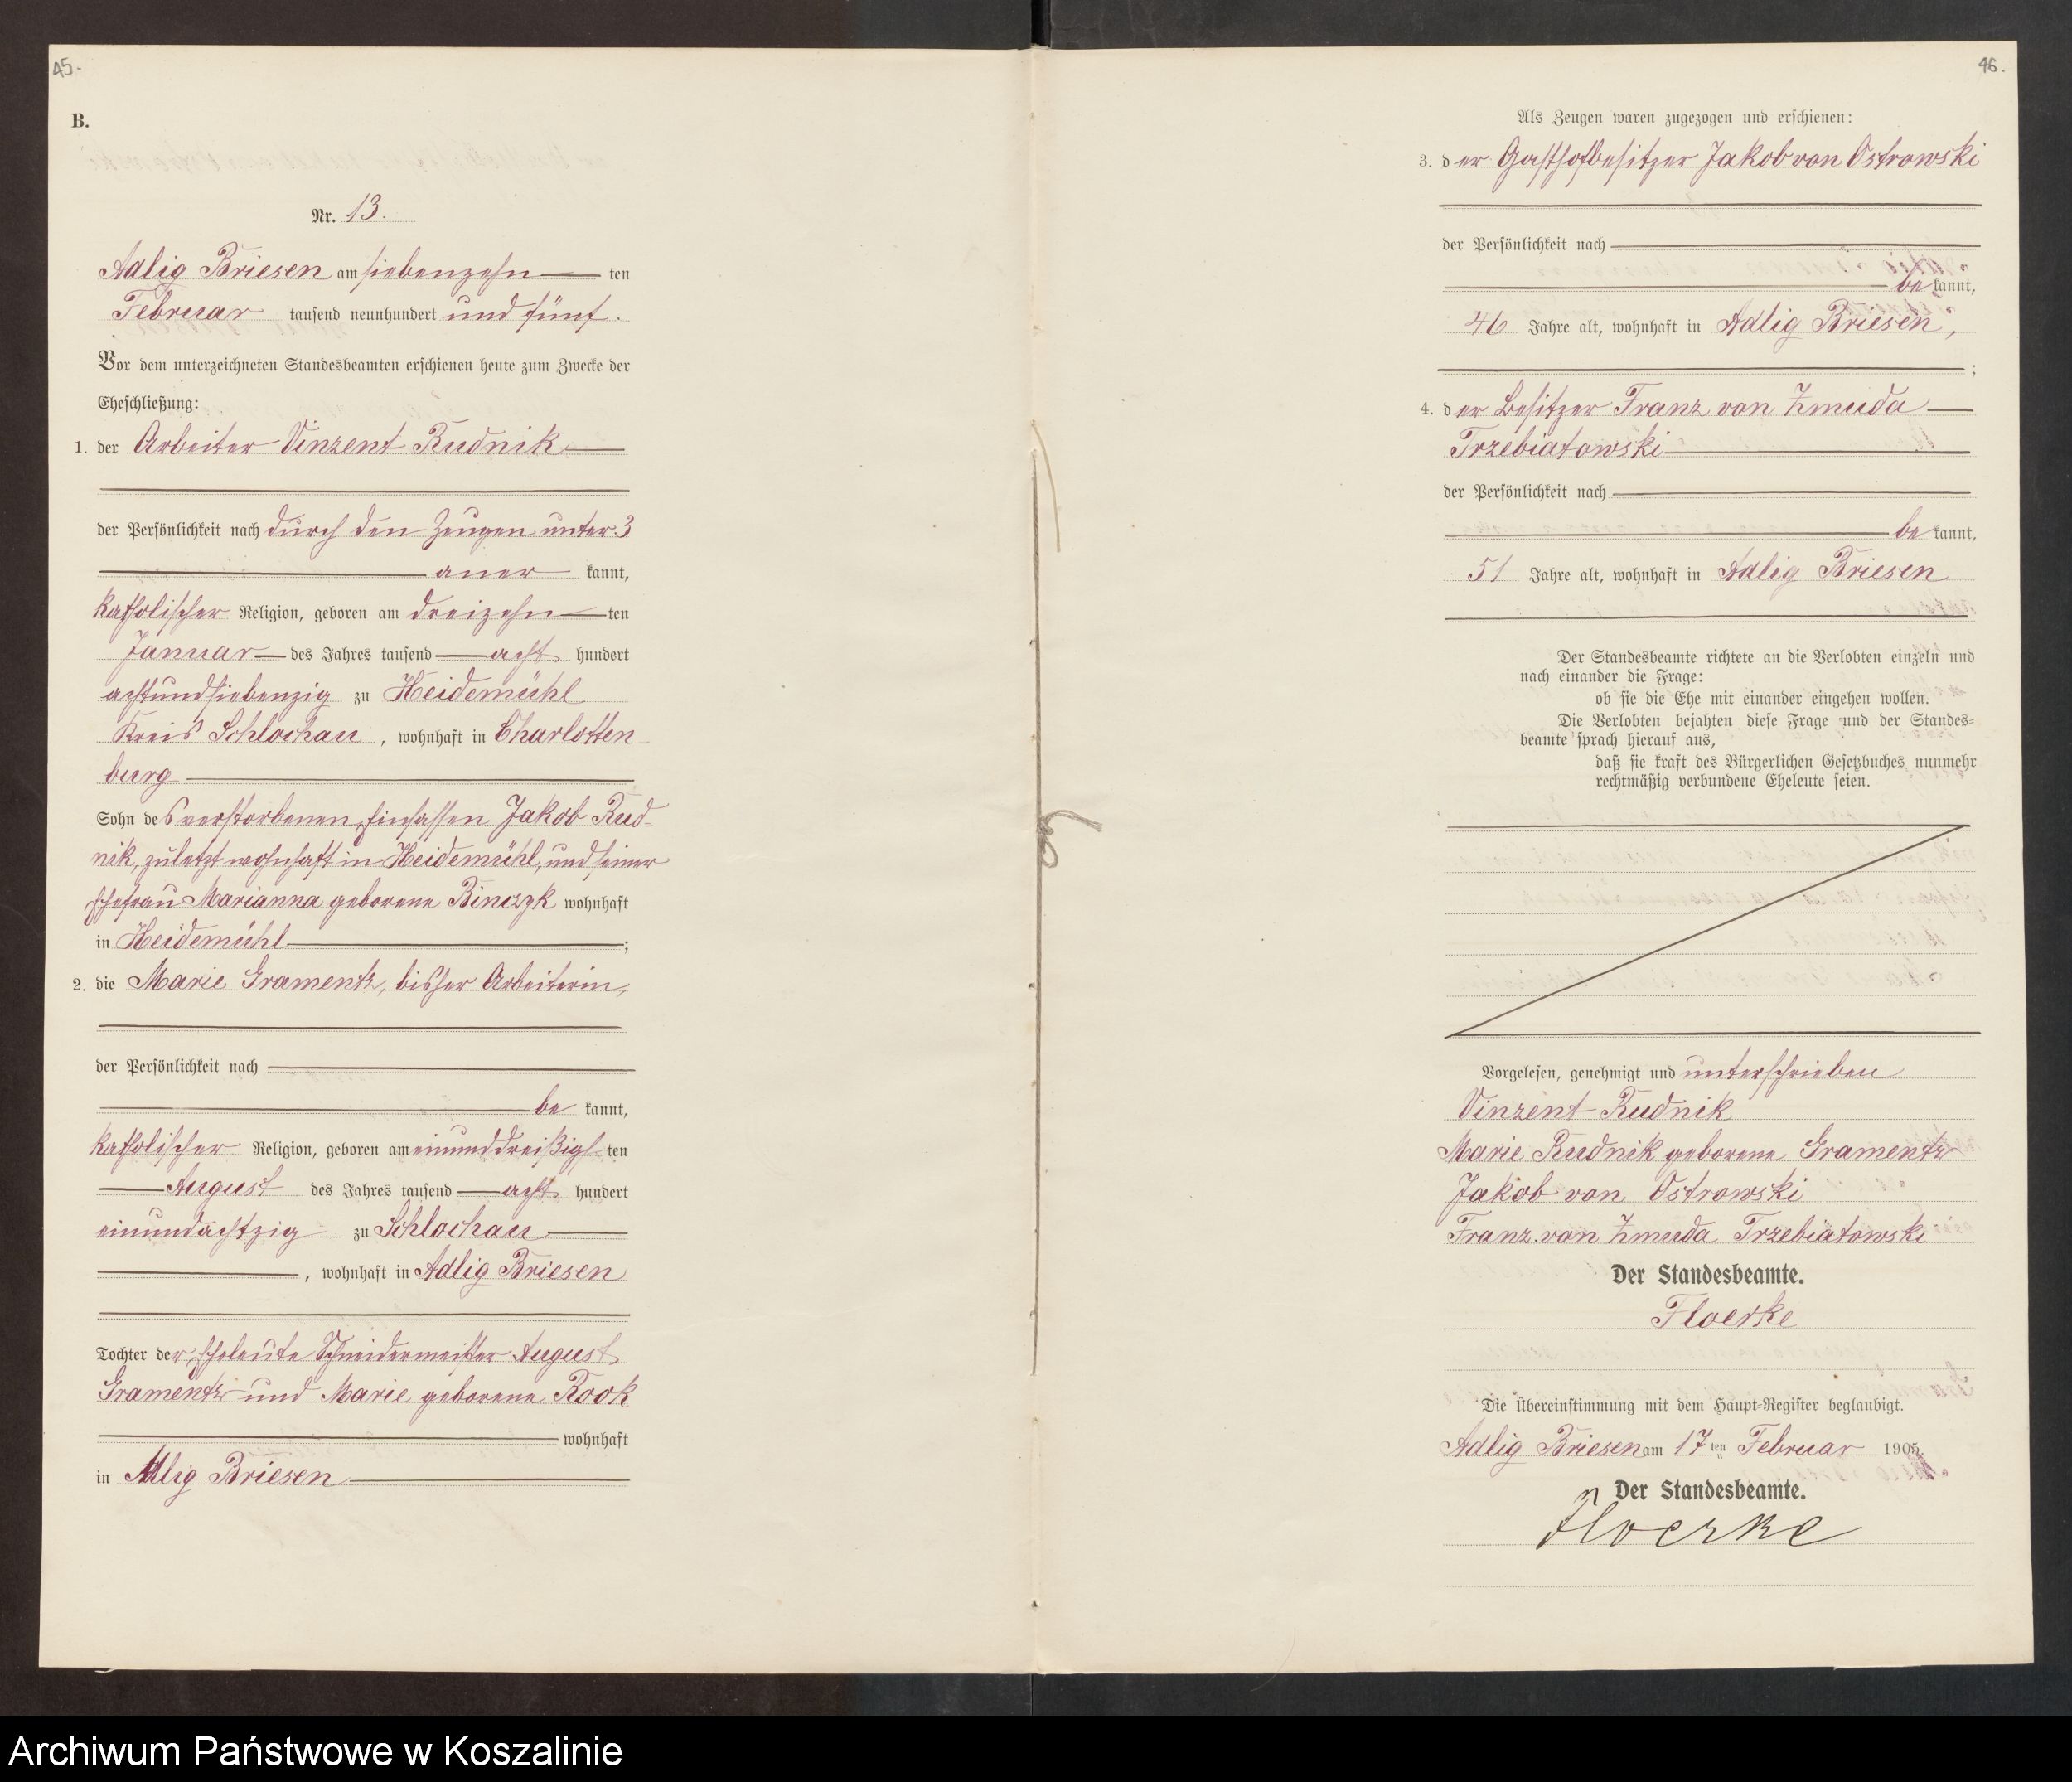 45.
B.
Nr. 13.
Adlig Briesen am siebenzehn ten
Februar tausend neunhundert und fünf.
Vor dem unterzeichneten Standesbeamten erschienen heute zum Zwecke der
Eheschließung:
1. der Arbeiter Vinzent Rudnik
der Persönlichkeit nach durch den Zeugen unter 3
aner kannt,
katholischer Religion, geboren am dreizehn ten
Januar des Jahres tausend acht hundert
achtundsiebenzig zu Heidemühl
Kreis Schlochau, wohnhaft in Charlotten
burg
Sohn des verstorbenen Einsassen Jakob Rud-
nik, zuletzt wohnhaft in Heidemühl, und seiner
Ehefrau Marianna geborene Binczyk wohnhaft
in Heidemühl ;
2. die Marie Gramentz, bisher Arbeiterin,
der Persönlichkeit nach
be kannt,
katholischer Religion, geboren am einunddreißigs ten
August des Jahres tausend acht hundert
einundachtzig zu Schlochau
, wohnhaft in Adlig Briesen
Tochter der Eheleute Schneidermeister August
Gramentz und Marie geborene Rook
wohnhaft
in Adlig Briesen
46.
Als Zeugen waren zugezogen und erschienen:
3. der Gasthofbesitzer Jakob von Ostrowski
der Persönlichkeit nach
be kannt,
46 Jahre alt, wohnhaft in Adlig Briesen,
;
4. der Besitzer Franz von Zmuda
Trzebiatowski
der Persönlichkeit nach
be kannt,
51 Jahre alt, wohnhaft in Adlig Briesen
Der Standesbeamte richtete an die Verlobten einzeln und
nach einander die Frage:
ob sie die Ehe mit einander eingehen wollen.
Die Verlobten bejahten diese Frage und der Standes-
beamte sprach hierauf aus,
daß sie kraft des Bürgerlichen Gesetzbuches nunmehr
rechtmäßig verbundene Eheleute seien.
Vorgelesen, genehmigt und unterschrieben
Vinzent Rudnik
Marie Rudnik geborene Gramentz
Jakob von Ostrowski
Franz von Zmuda Trzebiatowski
Der Standesbeamte.
Floerke
Die Übereinstimmung mit dem Haupt-Register beglaubigt.
Adlig Briesen am 17 ten Februar 1905.
Der Standesbeamte.
Floerke
Archiwum Państwowe w Koszalinie